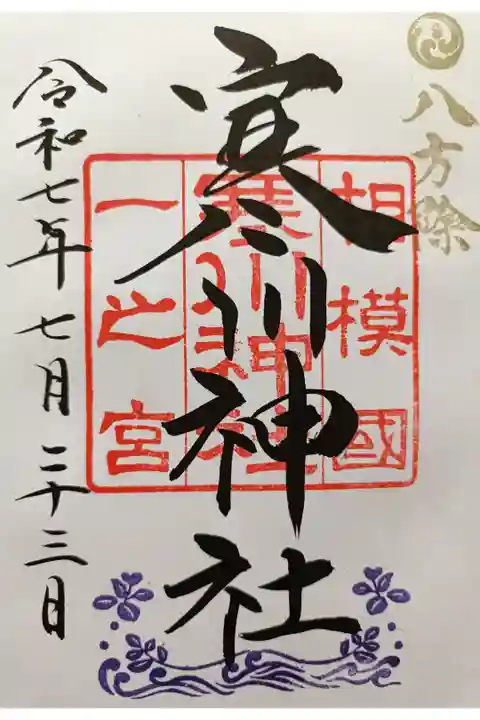 八方除
相模國
寒川神社
一之宮
寒川神社
令和七年七月二十三日